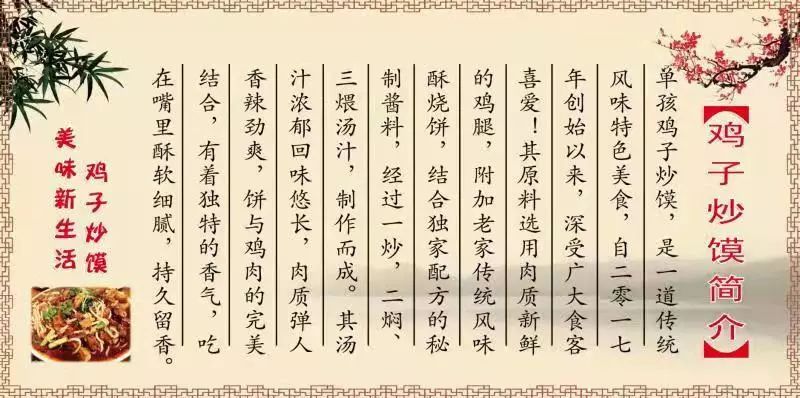 【鸡子炒馍简介】
单孩鸡子炒馍，是一道传统
风味特色美食，自二零一七
年创始以来，深受广大食客
喜爱！其原料选用肉质新鲜
的鸡腿，附加老家传统风味
酥烧饼，结合独家配方的秘
制酱料，经过一炒，二焖、
三煨汤汁，制作而成。其汤
汁浓郁回味悠长，肉质弹人
香辣劲爽，饼与鸡肉的完美
结合，有着独特的香气，吃
在嘴里酥软细腻，持久留香。
鸡子炒馍
美味新生活